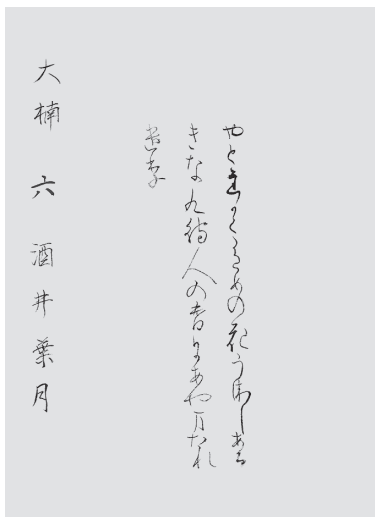 やとちかくうめの花うゑしあち
きな九待人の香にあや万たれ
遣李
大楠 六 酒井葉月